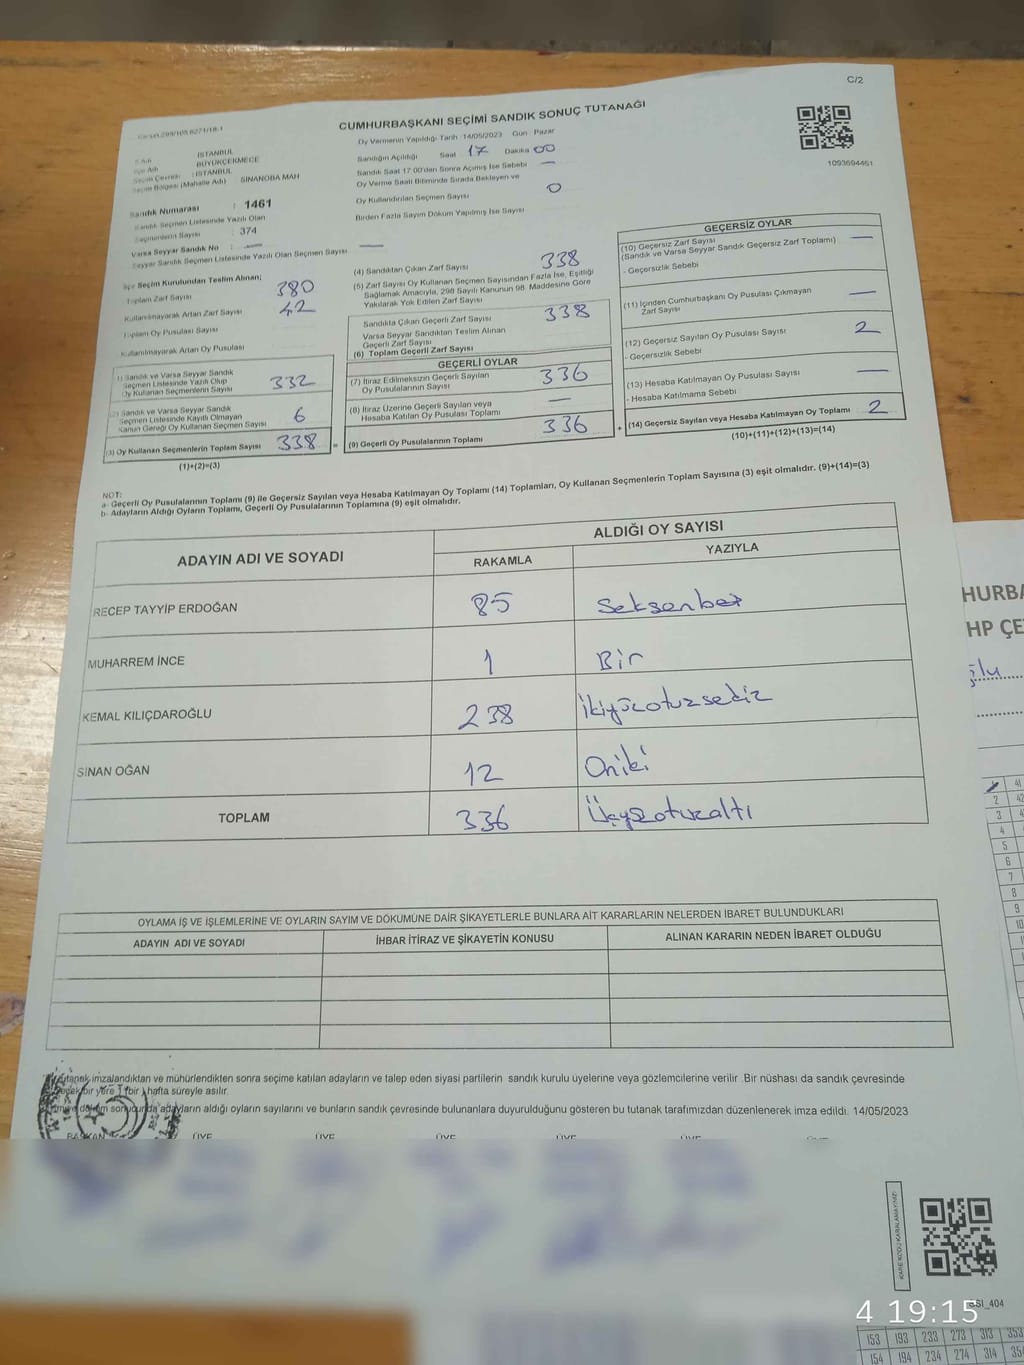 C/2
CUMHURBAŞKANI SEÇİMİ SANDIK SONUÇ TUTANAĞI
1093694461
Oy Vermenin Yapıldığı Tarih 14/05/2023 Gün Pazar
Sandığın Açıldığı Saat 17 Dakika 00
Sandık Saat 17:00'den Sonra Açılmış İse Sebebi —
Oy Verme Saati Bitiminde Sırada Bekleyen ve
Oy Kullandırılan Seçmen Sayısı 0
Birden Fazla Sayım Döküm Yapılmış İse Sayısı
İSTANBUL
BÜYÜKÇEKMECE
: İSTANBUL
Seçim Bölgesi (Mahalle Adı) SİNANOBA MAH
Sandık Numarası : 1461
Sandık Seçmen Listesinde Yazılı Olan
Seçmenlerin Sayısı : 374
Varsa Seyyar Sandık No : —
Seyyar Sandık Seçmen Listesinde Yazılı Olan Seçmen Sayısı —
İlçe Seçim Kurulundan Teslim Alınan;
Toplam Zarf Sayısı 380
Kullanılmayarak Artan Zarf Sayısı 42
Toplam Oy Pusulası Sayısı
Kullanılmayarak Artan Oy Pusulası
(1) Sandık ve Varsa Seyyar Sandık
Seçmen Listesinde Yazılı Olup
Oy Kullanan Seçmenlerin Sayısı 332
(2) Sandık ve Varsa Seyyar Sandık
Seçmen Listesinde Kayıtlı Olmayan
Kanun Gereği Oy Kullanan Seçmen Sayısı 6
(3) Oy Kullanan Seçmenlerin Toplam Sayısı 338
(1)+(2)=(3)
(4) Sandıktan Çıkan Zarf Sayısı 338
(5) Zarf Sayısı Oy Kullanan Seçmen Sayısından Fazla İse, Eşitliği
Sağlamak Amacıyla, 298 Sayılı Kanunun 98. Maddesine Göre
Yakılarak Yok Edilen Zarf Sayısı
Sandıkta Çıkan Geçerli Zarf Sayısı 338
Varsa Seyyar Sandıktan Teslim Alınan
Geçerli Zarf Sayısı
(6) Toplam Geçerli Zarf Sayısı
GEÇERLİ OYLAR
(7) İtiraz Edilmeksizin Geçerli Sayılan
Oy Pusulalarının Sayısı 336
(8) İtiraz Üzerine Geçerli Sayılan veya
Hesaba Katılan Oy Pusulası Toplamı —
= (9) Geçerli Oy Pusulalarının Toplamı 336
GEÇERSİZ OYLAR
(10) Geçersiz Zarf Sayısı —
(Sandık ve Varsa Seyyar Sandık Geçersiz Zarf Toplamı)
- Geçersizlik Sebebi
(11) İçinden Cumhurbaşkanı Oy Pusulası Çıkmayan
Zarf Sayısı —
(12) Geçersiz Sayılan Oy Pusulası Sayısı 2
- Geçersizlik Sebebi
(13) Hesaba Katılmayan Oy Pusulası Sayısı —
- Hesaba Katılmama Sebebi
+ (14) Geçersiz Sayılan veya Hesaba Katılmayan Oy Toplamı 2
(10)+(11)+(12)+(13)=(14)
NOT:
a- Geçerli Oy Pusulalarının Toplamı (9) ile Geçersiz Sayılan veya Hesaba Katılmayan Oy Toplamı (14) Toplamları, Oy Kullanan Seçmenlerin Toplam Sayısına (3) eşit olmalıdır. (9)+(14)=(3)
b- Adayların Aldığı Oyların Toplamı, Geçerli Oy Pusulalarının Toplamına (9) eşit olmalıdır.
ADAYIN ADI VE SOYADI
ALDIĞI OY SAYISI
RAKAMLA YAZIYLA
RECEP TAYYİP ERDOĞAN 85 Seksenbeş
MUHARREM İNCE 1 Bir
KEMAL KILIÇDAROĞLU 238 İkiyüzotuzsekiz
SİNAN OĞAN 12 Oniki
TOPLAM 336 Üçyüzotuzaltı
OYLAMA İŞ VE İŞLEMLERİNE VE OYLARIN SAYIM VE DÖKÜMÜNE DAİR ŞİKAYETLERLE BUNLARA AİT KARARLARIN NELERDEN İBARET BULUNDUKLARI
ADAYIN ADI VE SOYADI İHBAR İTİRAZ VE ŞİKAYETİN KONUSU ALINAN KARARIN NEDEN İBARET OLDUĞU
imzalandıktan ve mühürlendikten sonra seçime katılan adayların ve talep eden siyasi partilerin sandık kurulu üyelerine veya gözlemcilerine verilir. Bir nüshası da sandık çevresinde
bir yere 1 (bir) hafta süreyle asılır.
adayların aldığı oyların sayılarını ve bunların sandık çevresinde bulunanlara duyurulduğunu gösteren bu tutanak tarafımızdan düzenlenerek imza edildi. 14/05/2023
BAŞKAN ÜYE ÜYE ÜYE ÜYE ÜYE
HURBA
HP ÇE
41
2 42
3
4
5
6
7
8
9
10
4 19:15
153 193 233 273 313 353
154 194 234 274 314 354